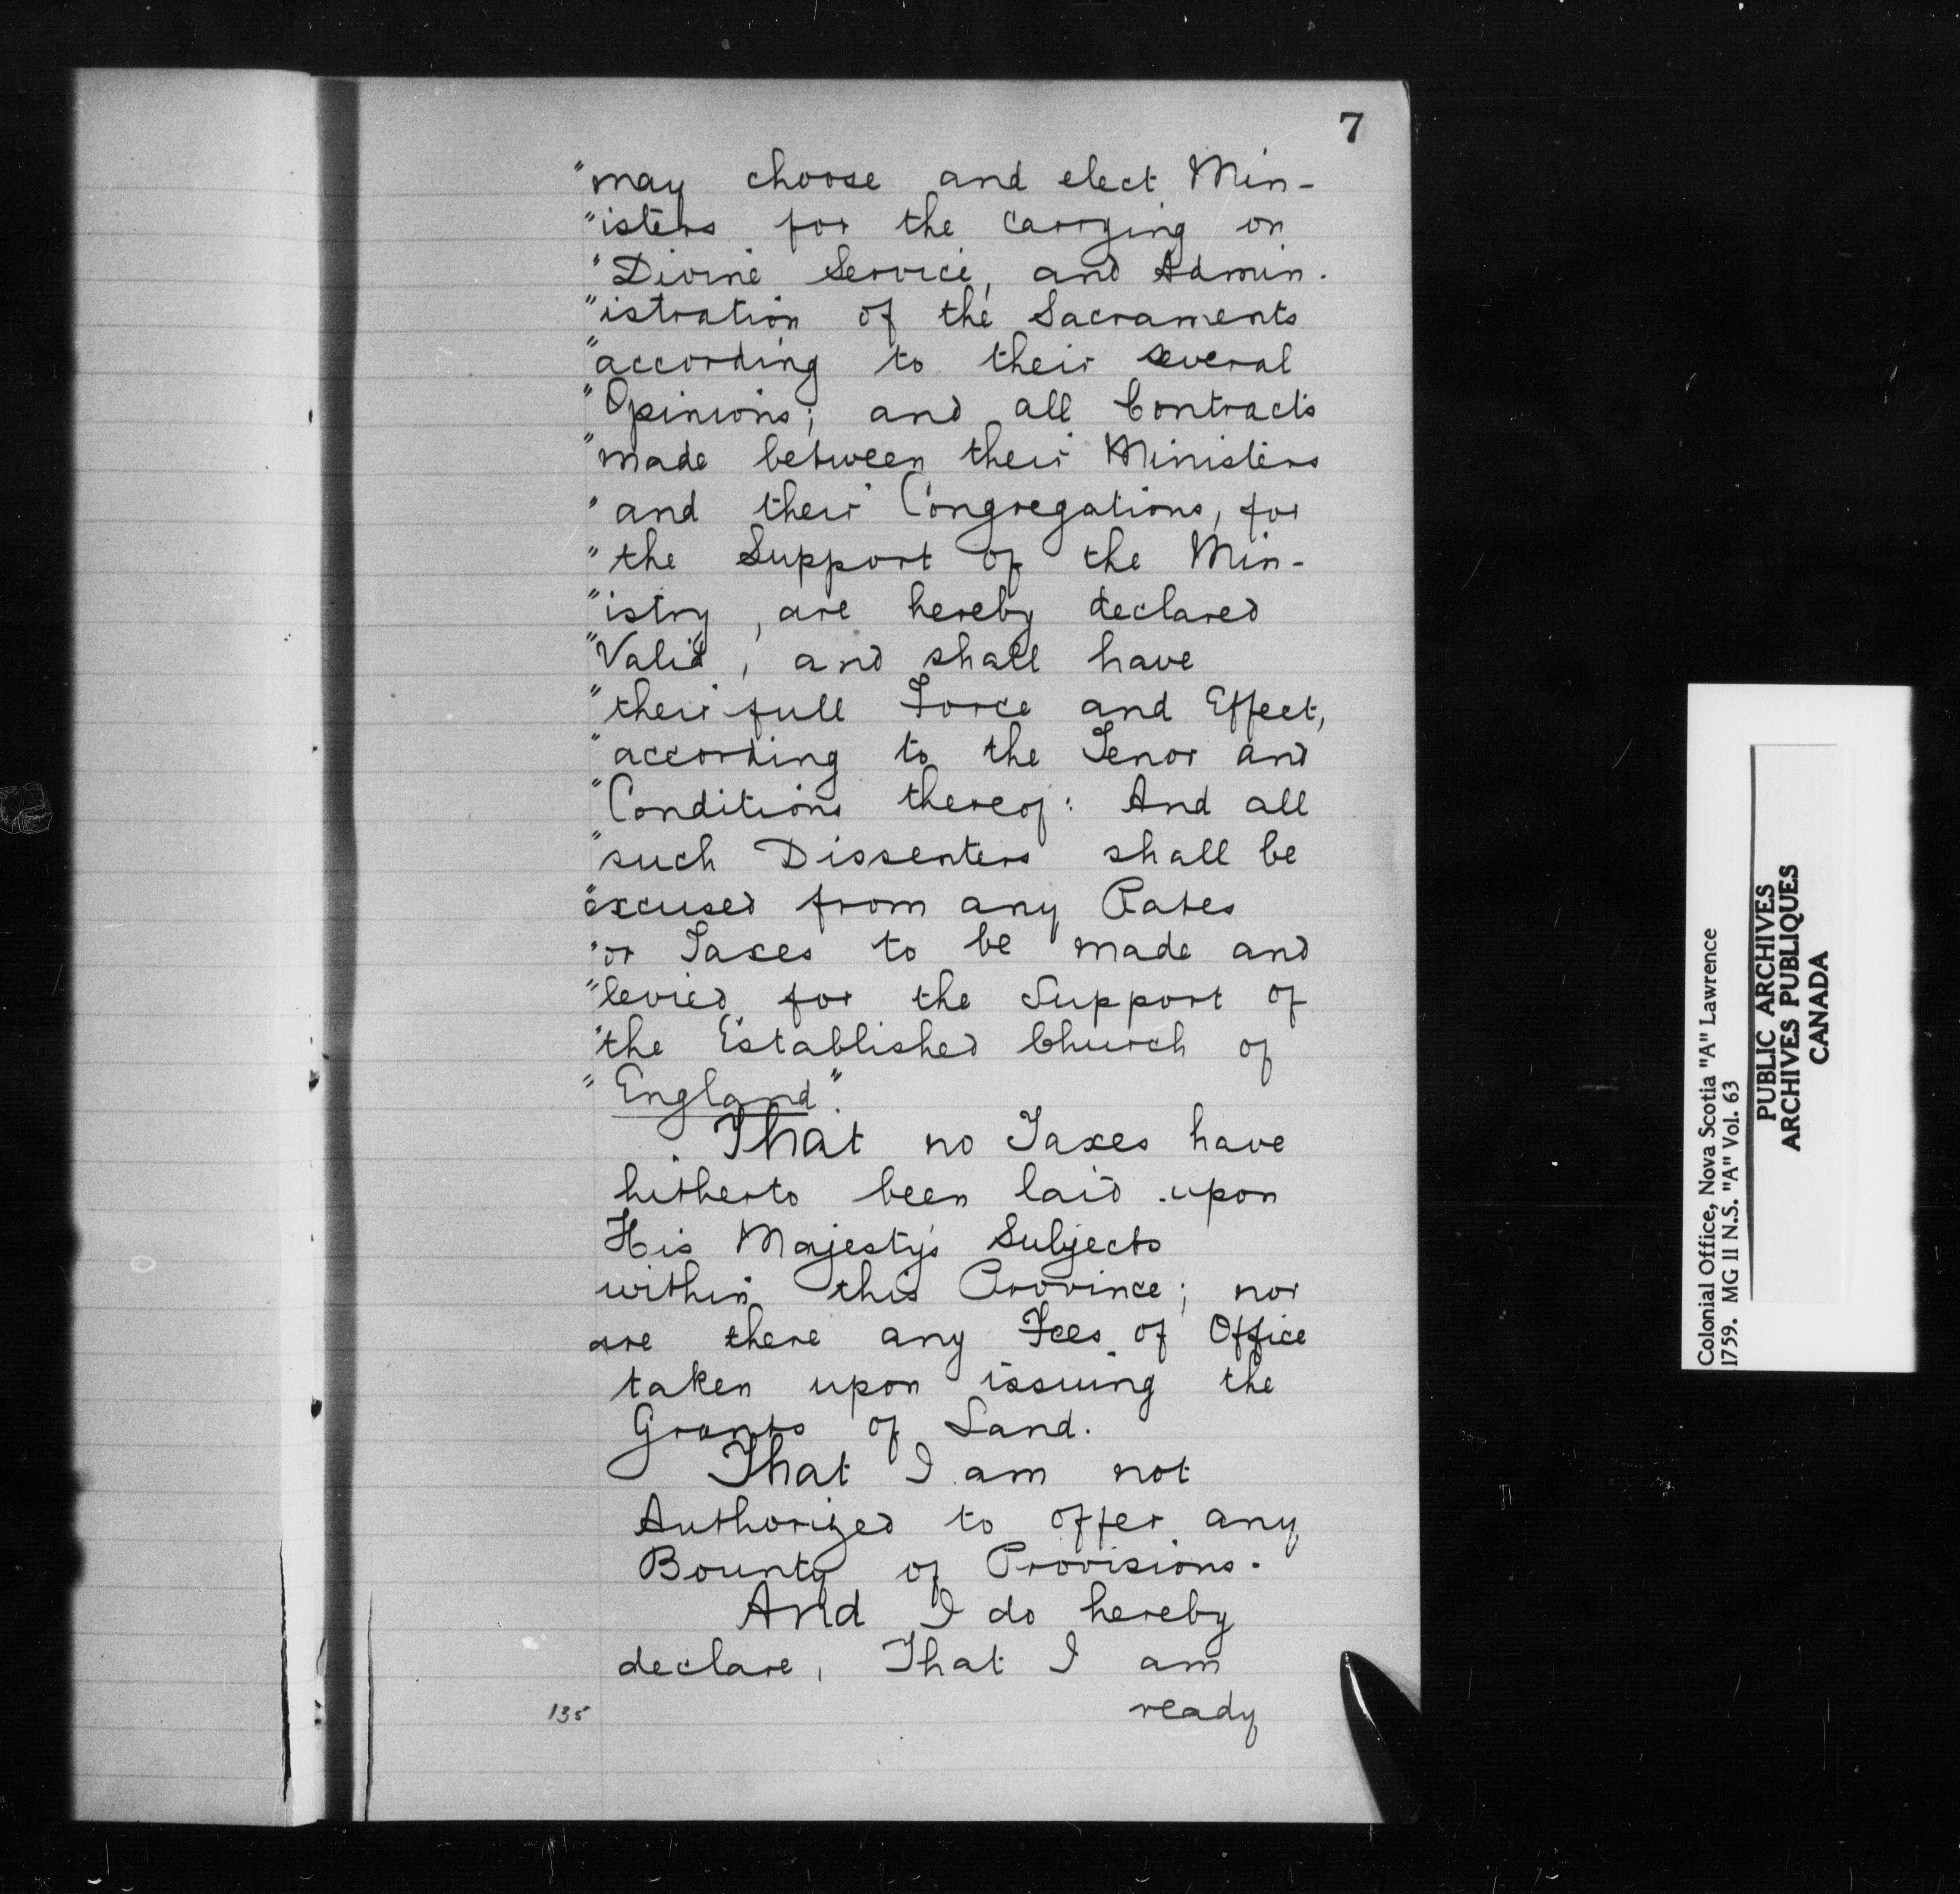 7
"may choose and elect Min-
"isters for the carrying on
"Divine Service, and Admin-
"istration of the Sacraments
"according to their several
"Opinions; and all Contracts
"made between their Ministers
"and their Congregations, for
"the Support of the Min-
"istry, are hereby declared
"Valid, and shall have
"their full Force and Effect,
"according to the Tenor and
"Conditions thereof: And all
"such Dissenters shall be
"excused from any Rates
"or Taxes to be made and
"levied for the Support of
"the Established Church of
"England".
That no Taxes have
hitherto been laid upon
His Majesty's Subjects
within this Province; nor
are there any Fees of Office
taken upon issuing the
Grants of Land.
That I am not
Authorized to offer any
Bounty of Provisions.
And I do hereby
declare, That I am
ready
135
Colonial Office, Nova Scotia "A" Lawrence
1759. MG 11 N.S. "A" Vol. 63
PUBLIC ARCHIVES
ARCHIVES PUBLIQUES
CANADA